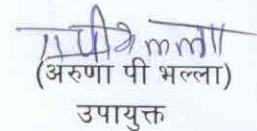 (अरुणा पी भल्ला)
उपायुक्त